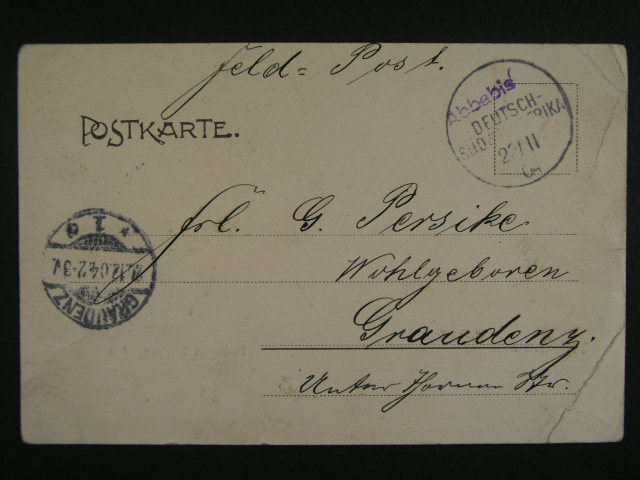 Feld=Post.
Abbabis
DEUTSCH-
SÜD RIKA
23/11
04
POSTKARTE.
Frl. G. Persike
Wohlgeboren
Graudenz.
Unter
Str.
* 1 a
12.04.2-3
GRAUDENZ